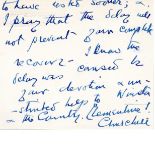 to have rested sooner, &.
I pray that the delay will
not prevent your complete
I know the
recovery - caused by
delay was
your devotion & un-
-stinted help to Winston
& the Country. Clementine S.
Churchill